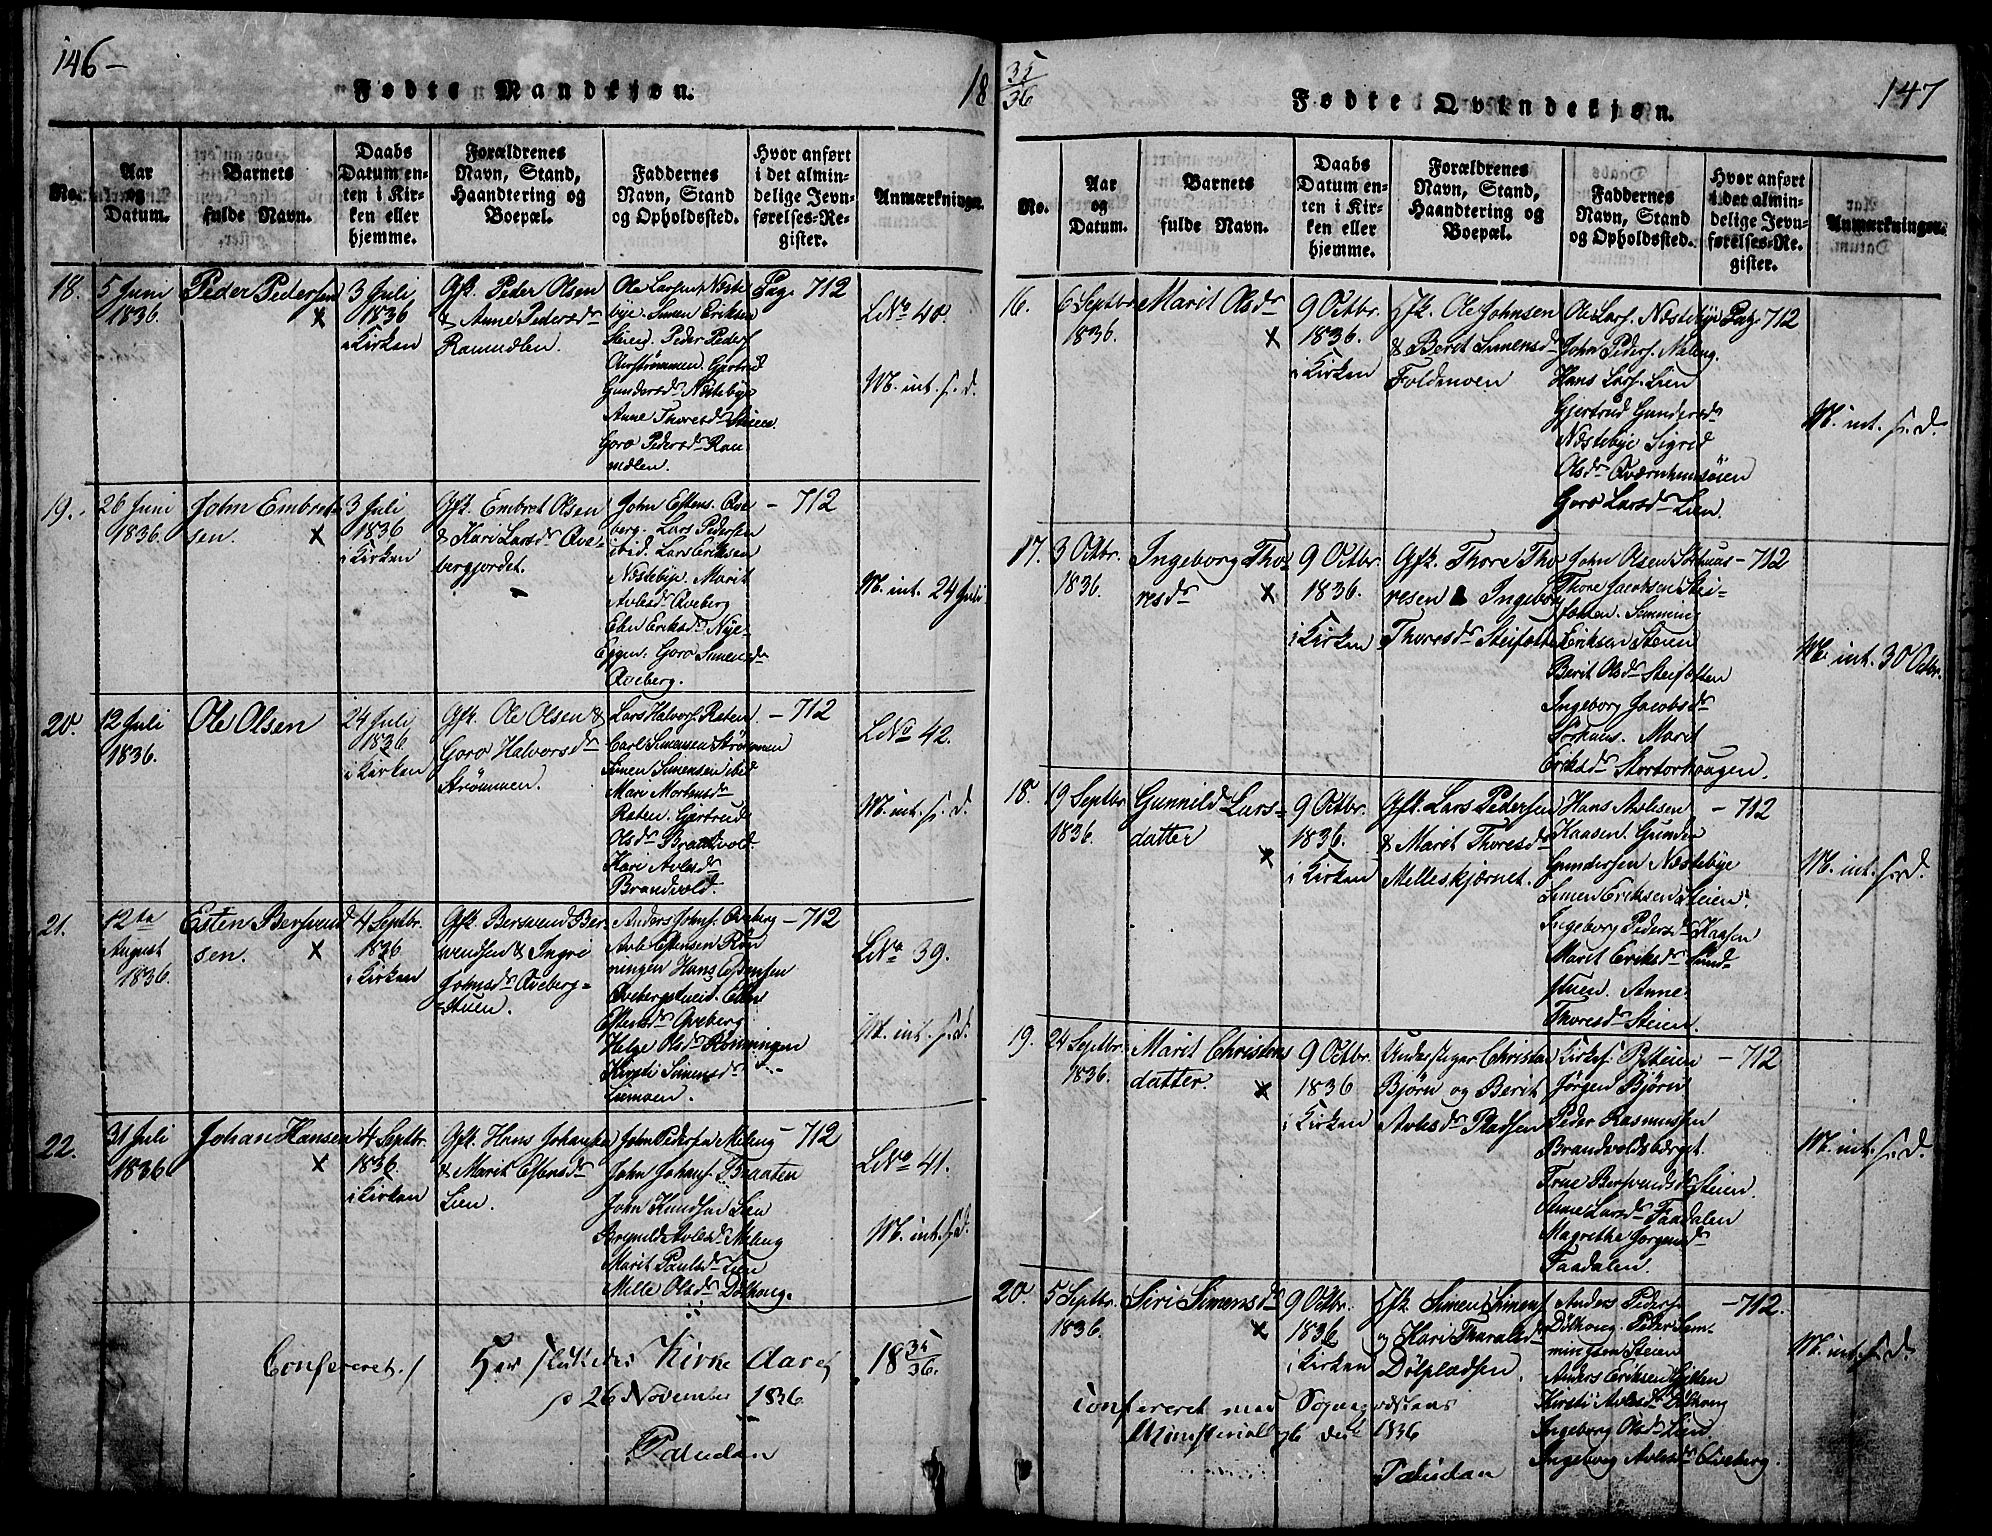 146-
Fødte Mandkjøn.
18
No.
Aar og Datum.
Barnets fulde Navn.
Daabs Datum enten i Kirken eller hjemme.
Forældrenes Navn, Stand, Haandtering og Boepæl.
Faddernes Navn, Stand og Opholdssted.
Hvor anført i det almindelige Jevnførelses-Register.
Anmærkninger.
18.
5 Juni
1836.
Peder Pedersen
x
3 Juli
1836
i Kirken
Gft. Peder Olsen
& Anne Pedersdr
Ole Larsen Næste
bye. Simen Eriksen
Peder Peders
Gjertrud
Gundersdr Næstebye
Anne Thoresdr Steien
Goro Pedersdr
Pag. 712
LNo 40.
M. int. s. d.
19.
26 Juni
1836.
John Embret
sen.
x
3 Juli
1836
i Kirken
Gft. Embret Olsen
& Kari Larsdr Qve-
bergjordet.
John Estens. Qve
berg. Lars Pedersen
ibid. Lars Eriksen
Næstebye. Marit
Avlesdr Qveberg
Eli Eriksdr Nye-
Eggen. Goro Simensdr
Qveberg.
- 712
M. int. 24 Juli
20.
12 Juli
1836.
Ole Olsen
24 Juli
1836
i Kirken
Gft. Ole Olsen &
Goro Halvorsdr
Strømmen.
Lars Halvors. Raten
Carl Simensen Strømmen
Simen Simensen ibid
Mari Mortensdr
Raten. Gjertrud
Olsdr Brandvold
Kari Avlesdr
Brandvold.
- 712
LNo 42.
M. int. s. d.
21.
12te
August
1836.
Esten Bersvend
sen.
x
4 Septbr.
1836
i Kirken
Gft. Bersvend Ber
svendsen & Ingri
Johnsdr Qveberg-
stuen.
Anders Johns. Qveberg
Avle Estensen Røn
ningen Hans Estensen
Estensdr Qveberg
Helge Olsdr Rønningen
Kirsti Simensdr
- 712
LNo 39.
M. int. s. d.
22.
31 Juli
1836
Johan Hansen
x
4 Septbr.
1836
i Kirken
Gft. Hans Johansen
& Marit Estensdr
Lien.
John Pedersen Meleng
John Johans. Braaten
John Knudsen Lien
Avlesdr Meleng
Marit Paulsdr Lien
Mille Olsdr Dølhoug.
- 712
LNo 41.
M. int. s. d.
Confereret /
Her sluttedes Kirke Aaret 18 35/36.
26 November 1836
Paludan
35/36
Fødte Qvindekjøn.
147
No.
Aar og Datum.
Barnets fulde Navn.
Daabs Datum enten i Kirken eller hjemme.
Forældrenes Navn, Stand, Haandtering og Boepæl.
Faddernes Navn, Stand og Opholdssted.
Hvor anført i det almindelige Jevnførelses-Register.
Anmærkninger.
16.
6 Septbr
1836.
Marit Olsdr
x
9 Octbr.
1836.
i Kirken
Ole Johnsen
& Berit Simensdr
Foldmoen
Ole Lars. Næstebye
John Peders. Meleng.
Hans Lars. Lien
Gjertrud Gundersdr
Næstebye Sigrid
Olsdr Qværnhemsøien
Goro Larsdr Lien.
Pag. 712
M. int. s. d.
17.
3 Octbr.
1836.
Ingeborg Tho
resdr
x
9 Octbr.
1836.
i Kirken
Gft. Thore Tho
resen & Ingeborg
Thoresdr Steifoten
John Olsen
Thore Jacobsen Stei-
foten. Semming
Eriksen Steien
Berit Olsdr Steifoten
Ingeborg Jacobsdr
Marit
Eriksdr Stortorhougen.
- 712
M. int. 30 Octbr.
18.
19 Septbr.
1836.
Gunnild Lars-
datter
x
9 Octbr.
1836.
i Kirken
Gft. Lars Pedersen
& Marit Thoresdr
Melleskjærnet.
Hans Avlesen
Haasen. Gunder
Gundersen Næstebye
Simen Eriksen Steien.
Ingeborg Pedersdr Haasen
Marit Eriksdr Sund-
stuen. Anne
Thoresdr Steien.
- 712
M. int. s. d.
19.
24 Septbr.
1836.
Marit Christens
datter.
x
9 Octbr.
1836
i Kirken
Christen
Bjørn og Berit
Avlesdr Pladsen
Jørgen Bjørn
Peder Rasmussen
Brandvoldsberget.
True Bersvendsdr Steien.
Anne Larsdr Faadalen
Magrethe Jørgensdr
Faadalen.
- 712
M. int. s. d.
20.
5 Septbr.
1836.
Siri Simensdr
x
9 Octbr.
1836
i Kirken
Simen Simens.
og Kari Tharaldsdr
Dølpladsen.
Anders Peders.
Dølhoug. Peter Sem-
mingsen Steien
Anders Eriksen
Kirsti Avlesdr Dølhoug
Ingeborg Olsdr Lien.
Ingeborg Avlesdr Qveberg.
- 712.
M. int. s. d.
Confereret med Sognepræstens
Ministerialbog 26 Decbr 1836
Paludan